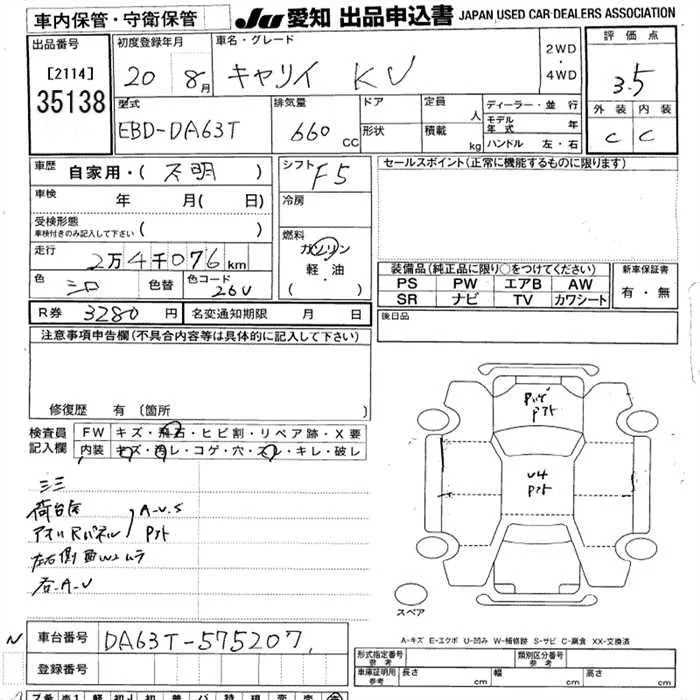 車内保管・守衛保管
JU 愛知 出品申込書 JAPAN USED CAR DEALERS ASSOCIATION
出品番号
[2114]
35138
初度登録年月
20 8月
車名・グレード
キャリイ KU
2WD
・
4WD
評価点
3.5
外装 内装
C C
型式
EBD-DA63T
排気量
660 CC
ドア
形状
定員 人
積載 kg
ディーラー・並行
モデル年式 年
ハンドル 左・右
車歴
自家用・( 不明 )
車検 年 月( 日)
受検形態
車検付きのみ記入して下さい ( )
走行
2万4千076km
色 シロ 色替 色コード 26U
シフト F5
冷房
燃料
ガソリン
軽・油
( ・ )
セールスポイント(正常に機能するものに限ります)
装備品(純正品に限り○をつけてください)
PS PW エアB AW
SR ナビ TV カワシート
新車保証書
有・無
R券 3280円 名変通知期限 月 日
後日品
注意事項申告欄(不具合内容等は具体的に記入して下さい)
修復歴 有 (箇所 )
検査員
記入欄
FW キズ・飛石・ヒビ割・リペア跡・X要
内装 キズ・汚レ・コゲ・穴・スレ・キレ・破レ
荷台
A-U.S
左右側面W2ムラ
右-A-U
U4
スペア
A-キズ E-エクボ U-凹み W-補修跡 S-サビ C-腐食 XX-交換済
N 車台番号 DA63T-575207
登録番号
形式指定番号
参考
類別区分番号
参考
車庫証明用
参考
長さ cm 幅 cm 高さ cm